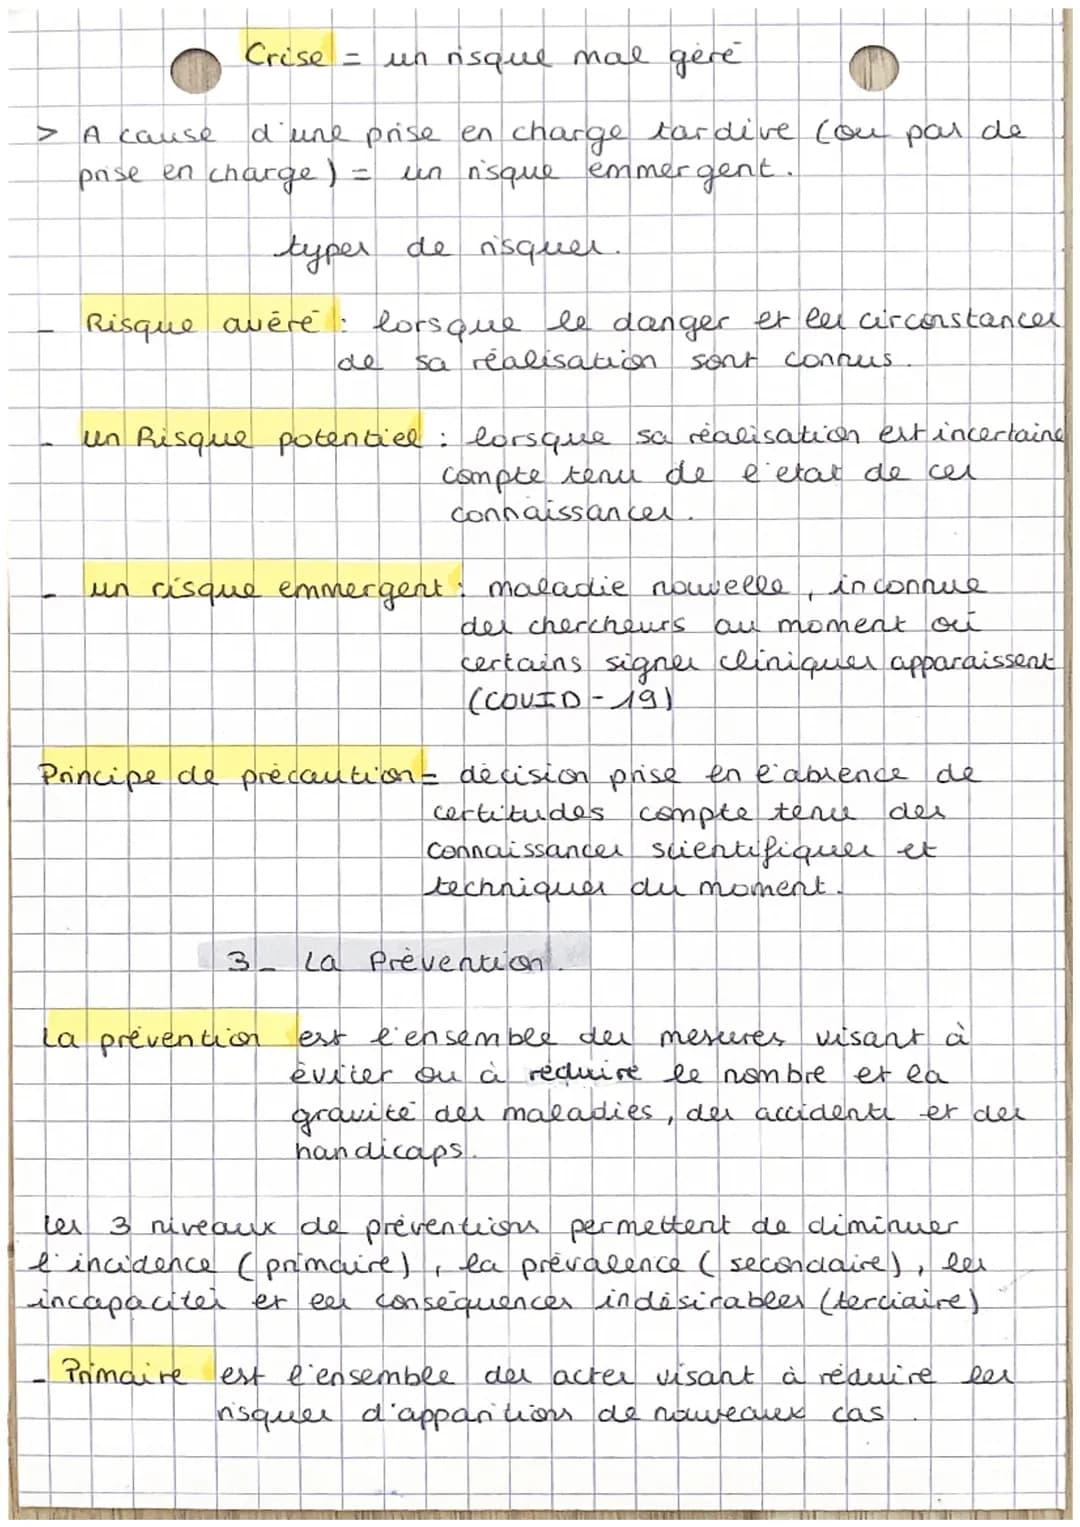 Crise = un risque mal géré
> A cause d'une prise en charge tardive (ou pas de
prise en charge) = un risque emmergent.
types de risques.
- Risque avéré : lorsque le danger et les circonstances
de sa réalisation sont connus.
- un Risque potentiel : lorsque sa réalisation est incertaine
compte tenu de l'état de ces
connaissances.
- un risque emmergent : maladie nouvelle, inconnue
des chercheurs au moment où
certains signes cliniques apparaissent
(COVID-19)
Principe de précaution = décision prise en l'absence de
certitudes compte tenu des
connaissances scientifiques et
techniques du moment.
3_ La Prévention.
La prévention est l'ensemble des mesures visant à
éviter ou à réduire le nombre et la
gravité des maladies, des accidents et des
handicaps.
Les 3 niveaux de préventions permettent de diminuer
l'incidence (primaire), la prévalence (secondaire), les
incapacités et les conséquences indésirables (terciaire)
- Primaire est l'ensemble des actes visant à réduire les
risques d'apparitions de nouveaux cas.